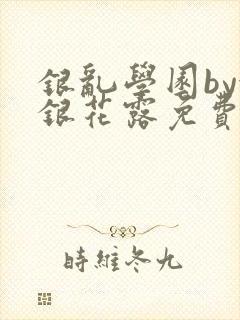 銀亂學園by
銀花露免費
時維冬九